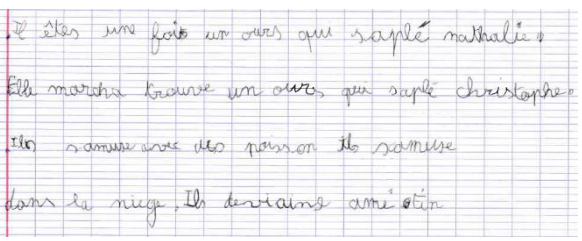 Il êtes une fois un ours qui saplé nathalie.
Elle marcha trouve un ours qui saplé christophe.
Ils samuse avec des poisson ils samuse
dans la niege. Ils deviains amé fin